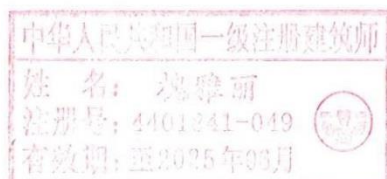 中华人民共和国一级注册建筑师
姓 名: 雅丽
注册号: 4401241-049
有效期: 至2025年06月